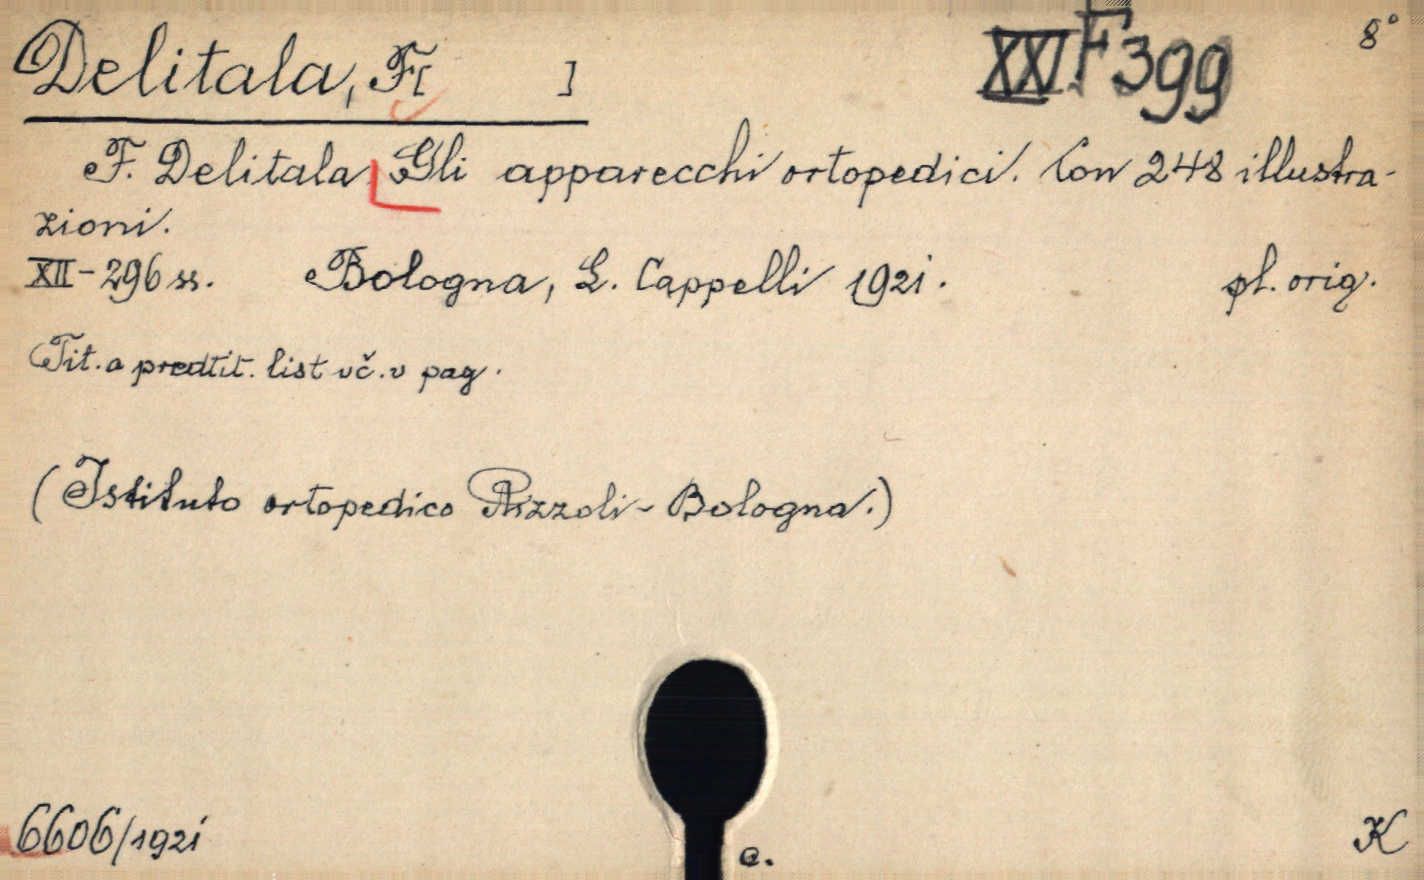 Delitala, F[ ]
XXI F 399
8°
F. Delitala Gli apparecchi ortopedici. Con 248 illustra-
zioni.
XII-296 ss. Bologna, L. Cappelli 1921. pl. orig.
Tit. a predtit. list vč. v pag.
(Istituto ortopedico Rizzoli - Bologna.)
6606/1921
c.
K